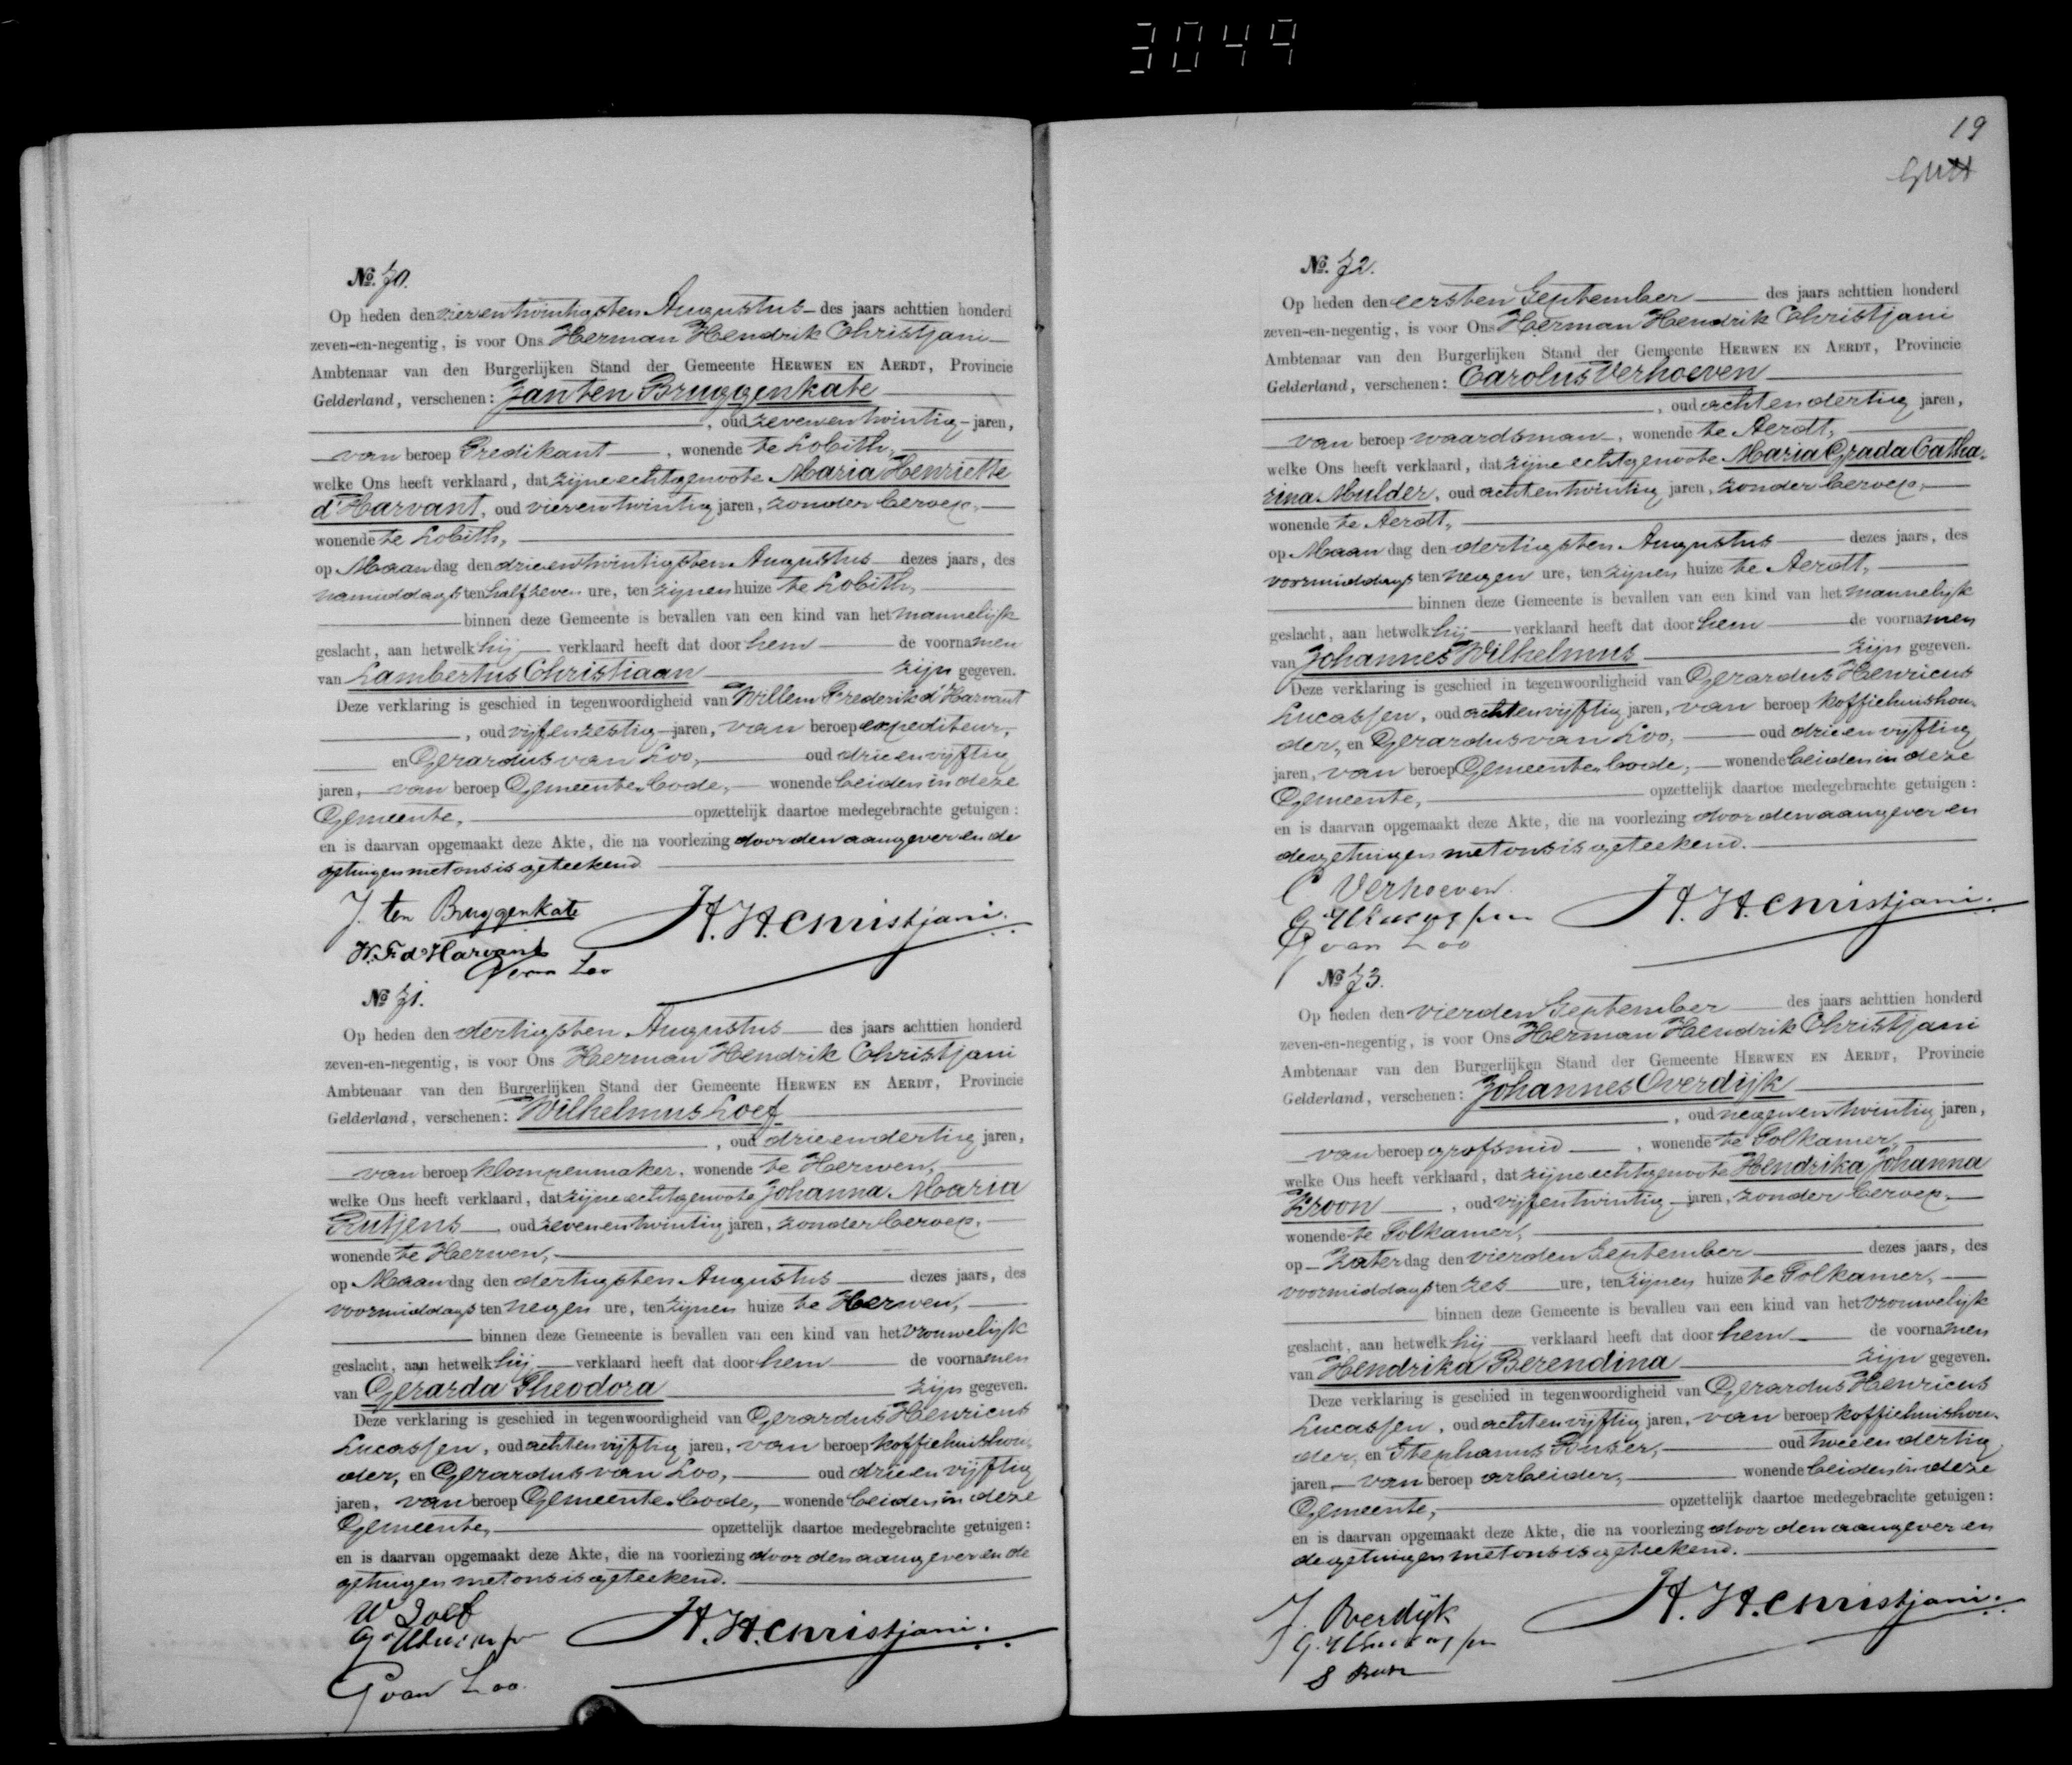 3049
19
No. 70.
Op heden den vierentwintigsten Augustus des jaars achttien honderd
zeven-en-negentig, is voor Ons Herman Hendrik Christjani
Ambtenaar van den Burgerlijken Stand der Gemeente HERWEN EN AERDT, Provincie
Gelderland, verschenen: Jan ten Bruggenkate
, oud zevenentwintig jaren,
van beroep Predikant, wonende te Lobith,
welke Ons heeft verklaard, dat zijne echtgenoote Maria Henriette
d'Harvant, oud vierentwintig jaren, zonder beroep,
wonende te Lobith,
op Maandag den drieentwintigsten Augustus dezes jaars, des
namiddags ten half zeven ure, ten zijnen huize te Lobith,
binnen deze Gemeente is bevallen van een kind van het mannelijk
geslacht, aan hetwelk hij verklaard heeft dat door hem de voornamen
van Lambertus Christiaan zijn gegeven.
Deze verklaring is geschied in tegenwoordigheid van Willem Frederik d'Harvant
, oud vijfenzestig jaren, van beroep expediteur,
en Gerardus van Loo, oud drieenvijftig
jaren, van beroep Gemeente-bode, wonende beiden in deze
Gemeente, opzettelijk daartoe medegebrachte getuigen:
en is daarvan opgemaakt deze Akte, die na voorlezing door den aangever en de
getuigen met ons is geteekend
J. ten Bruggenkate
H. H. Christjani.
W. F. d'Harvant
G van Loo
No 71.
Op heden den dertigsten Augustus des jaars achttien honderd
zeven-en-negentig, is voor Ons Herman Hendrik Christjani
Ambtenaar van den Burgerlijken Stand der Gemeente HERWEN EN AERDT, Provincie
Gelderland, verschenen: Wilhelmus Loef
, oud drieendertig jaren,
van beroep klompenmaker, wonende te Herwen,
welke Ons heeft verklaard, dat zijne echtgenoote Johanna Maria
Rutjens oud zevenentwintig jaren, zonder beroep,
wonende te Herwen,
op Maandag den dertigsten Augustus dezes jaars, des
voormiddags ten negen ure, ten zijnen huize te Herwen,
binnen deze Gemeente is bevallen van een kind van het vrouwelijk
geslacht, aan hetwelk hij verklaard heeft dat door hem de voornamen
van Gerarda Theodora zijn gegeven.
Deze verklaring is geschied in tegenwoordigheid van Gerardus Henricus
Lucassen, oud achtenvijftig jaren, van beroep koffiehuishou-
der, en Gerardus van Loo, oud drieenvijftig
jaren, van beroep Gemeente-bode, wonende beiden in deze
Gemeente, opzettelijk daartoe medegebrachte getuigen:
en is daarvan opgemaakt deze Akte, die na voorlezing door den aangever en de
getuigen met ons is geteekend.
W Loef
H. H. Christjani.
G van Loo.
No. 72.
Op heden den eersten September des jaars achttien honderd
zeven-en-negentig, is voor Ons Herman Hendrik Christjani
Ambtenaar van den Burgerlijken Stand der Gemeente HERWEN EN AERDT, Provincie
Gelderland, verschenen: Carolus Verhoeven
, oud achtendertig jaren,
van beroep waardsman, wonende te Aerdt,
welke Ons heeft verklaard, dat zijne echtgenoote Maria Grada Catha-
rina Mulder, oud achtentwintig jaren, zonder beroep,
wonende te Aerdt,
op Maandag den dertigsten Augustus dezes jaars, des
voormiddags ten negen ure, ten zijnen huize te Aerdt,
binnen deze Gemeente is bevallen van een kind van het mannelijk
geslacht, aan hetwelk hij verklaard heeft dat door hem de voornamen
van Johannes Wilhelmus zijn gegeven.
Deze verklaring is geschied in tegenwoordigheid van Gerardus Henricus
Lucassen, oud achtenvijftig jaren, van beroep koffiehuishou-
der, en Gerardus van Loo, oud drieenvijftig
jaren, van beroep Gemeente-bode, wonende beiden in deze
Gemeente, opzettelijk daartoe medegebrachte getuigen:
en is daarvan opgemaakt deze Akte, die na voorlezing door den aangever en
de getuigen met ons is geteekend.
C Verhoeven
H. H. Christjani.
G van Loo
No 73.
Op heden den vierden September des jaars achttien honderd
zeven-en-negentig, is voor Ons Herman Hendrik Christjani
Ambtenaar van den Burgerlijken Stand der Gemeente HERWEN EN AERDT, Provincie
Gelderland, verschenen: Johannes Overdijk
, oud negenentwintig jaren,
van beroep grofsmid, wonende te Tolkamer,
welke Ons heeft verklaard, dat zijne echtgenoote Hendrika Johanna
Kroon, oud vijfentwintig jaren, zonder beroep,
wonende te Tolkamer,
op Zaterdag den vierden September dezes jaars, des
voormiddags ten zes ure, ten zijnen huize te Tolkamer,
binnen deze Gemeente is bevallen van een kind van het vrouwelijk
geslacht, aan hetwelk hij verklaard heeft dat door hem de voornamen
van Hendrika Berendina zijn gegeven.
Deze verklaring is geschied in tegenwoordigheid van Gerardus Henricus
Lucassen, oud achtenvijftig jaren, van beroep koffiehuishou-
der, en Stephanus oud tweeendertig
jaren, van beroep arbeider, wonende beiden in deze
Gemeente, opzettelijk daartoe medegebrachte getuigen:
en is daarvan opgemaakt deze Akte, die na voorlezing door den aangever en
de getuigen met ons is geteekend.
J. Overdijk
H. H. Christjani.